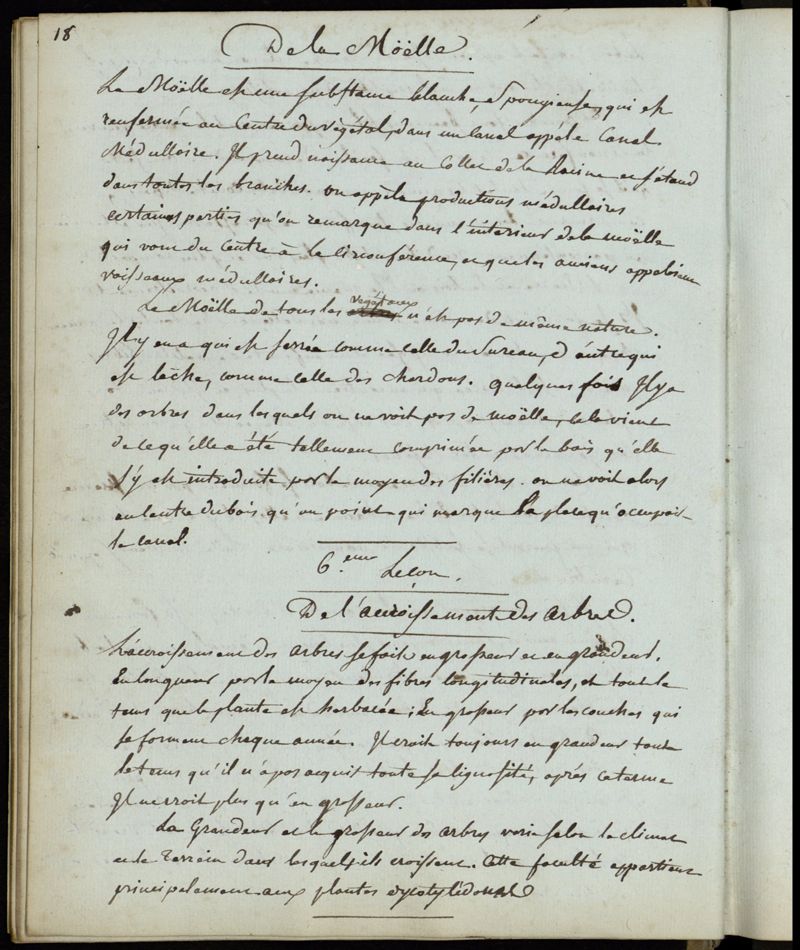 18
De la Möëlle.
La Möëlle est une substance blanche, Spongieuse, qui est
renfermée au Centre du végétal, dans un Canal appélé Canal
Médullaire. Il prend naissance au Collet de la Racine et s'étend
dans toutes les branches. on appéle productions médullaires
certaines parties qu'on remarque dans l'intérieur de la moëlle
qui vont du Centre à la Circonférence, et que les anciens appeloient
vaisseaux médullaires.
La Möëlle de tous les végétaux n'est pas de même nature.
Il y en a qui est serrée comme celle du Sureau, d'autre qui
est lâche, comme celle des chardons. quelques fois Il y a
des arbres dans lesquels on ne voit pas de moëlle, cela vient
de ce qu'elle a été tellement comprimée par le bois qu'elle
s'y est introduite par le moyen des filières. on ne voit alors
au Centre du bois qu'un point qui marque la place qu'occupoit
le canal.
6.eme Leçon.
De l'accroissement des arbres.
L'accroissement des arbres se fait en grosseur et en grandeur.
En longueur par le moyen des fibres longitudinales, et tout le
tems que la plante est herbacée; En grosseur par les couches qui
se forment chaque année. Il croit toujours en grandeur tout
le tems qu'il n'a pas acquit toute sa lignosité, après ce terme
Il ne croit plus qu'en grosseur.
La Grandeur et la grosseur des arbres varie selon le climat
et le Terrein dans lesquels ils croissent. Cette faculté appartient
principalement aux plantes dycotylédones